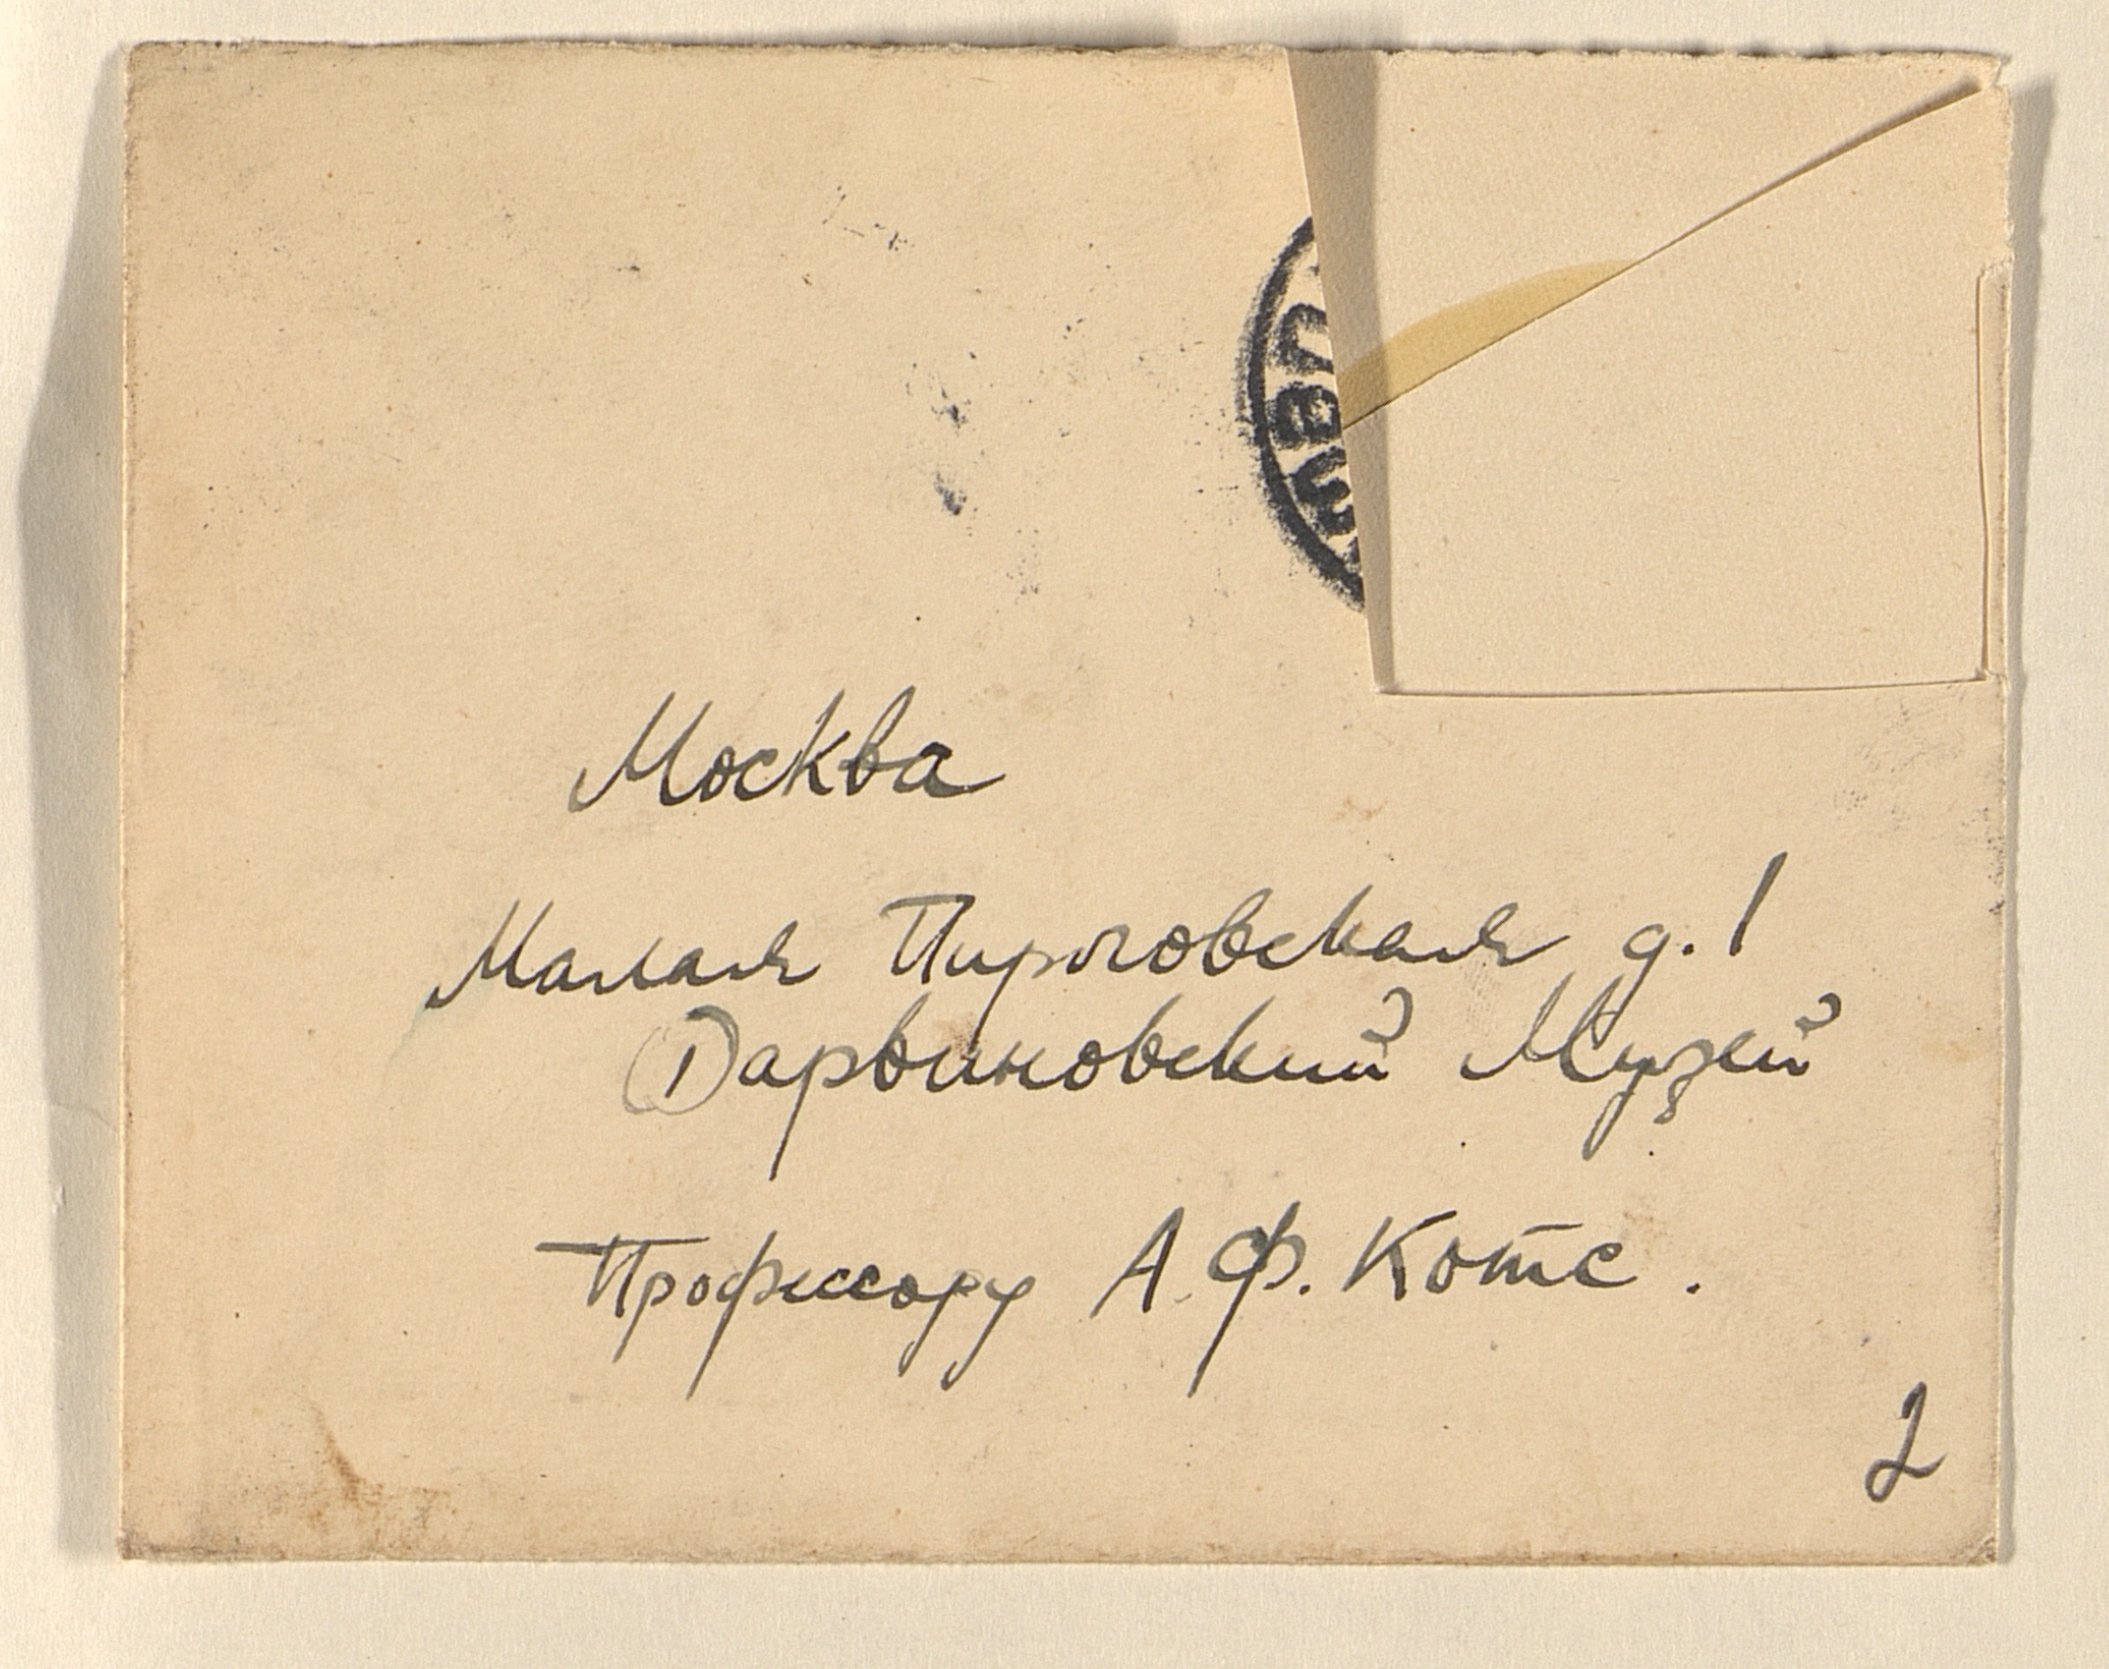 Москва
Малая Пироговская д. 1
Дарвиновский Музей
Профессору А. Ф. Котс.
2